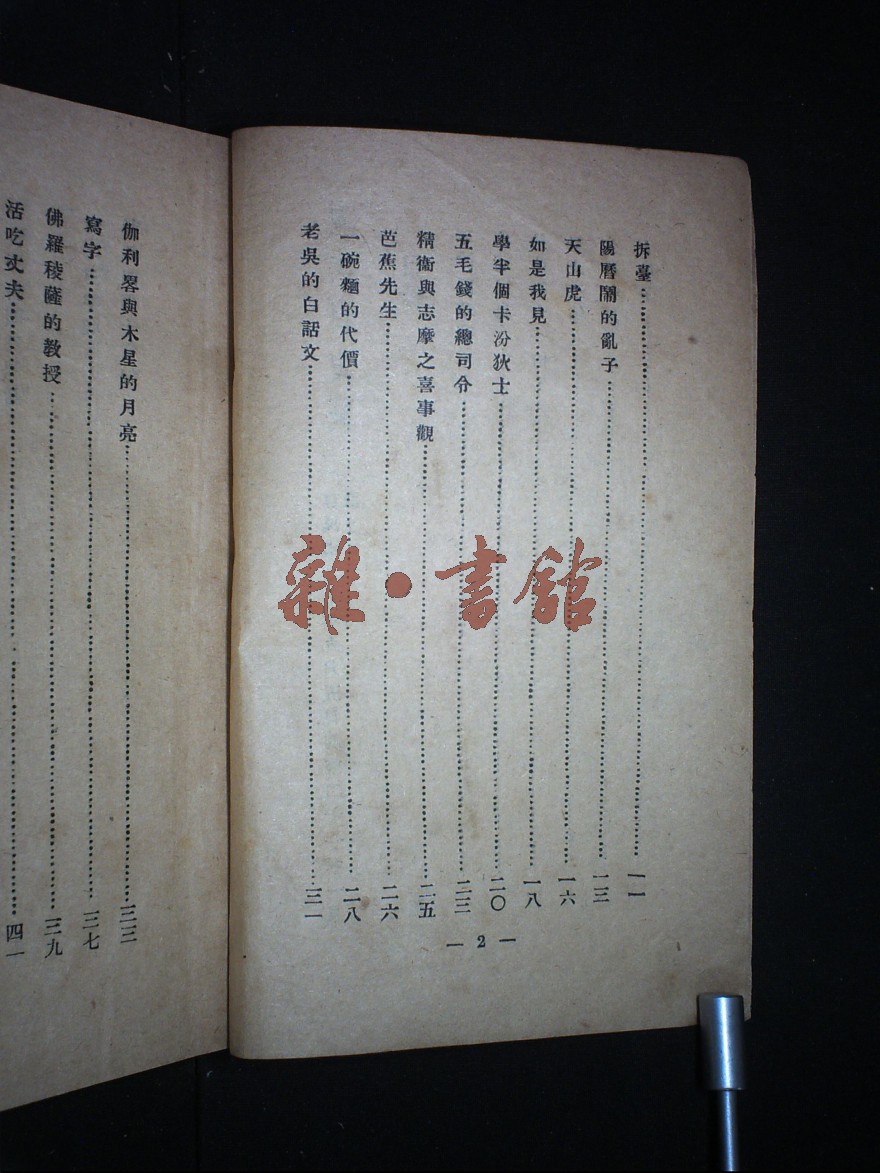 拆臺……一一
陽曆鬧的亂子……一三
天山虎……一六
如是我見……一八
學半個卡汾狄士……二〇
五毛錢的總司令……二三
精衞與志摩之喜事觀……二五
芭蕉先生……二六
一碗麵的代價……二八
老吳的白話文……三一
— 2 —
伽利畧與木星的月亮……三三
寫字……三七
佛羅稜薩的教授……三九
活吃丈夫……四一
雜·書館